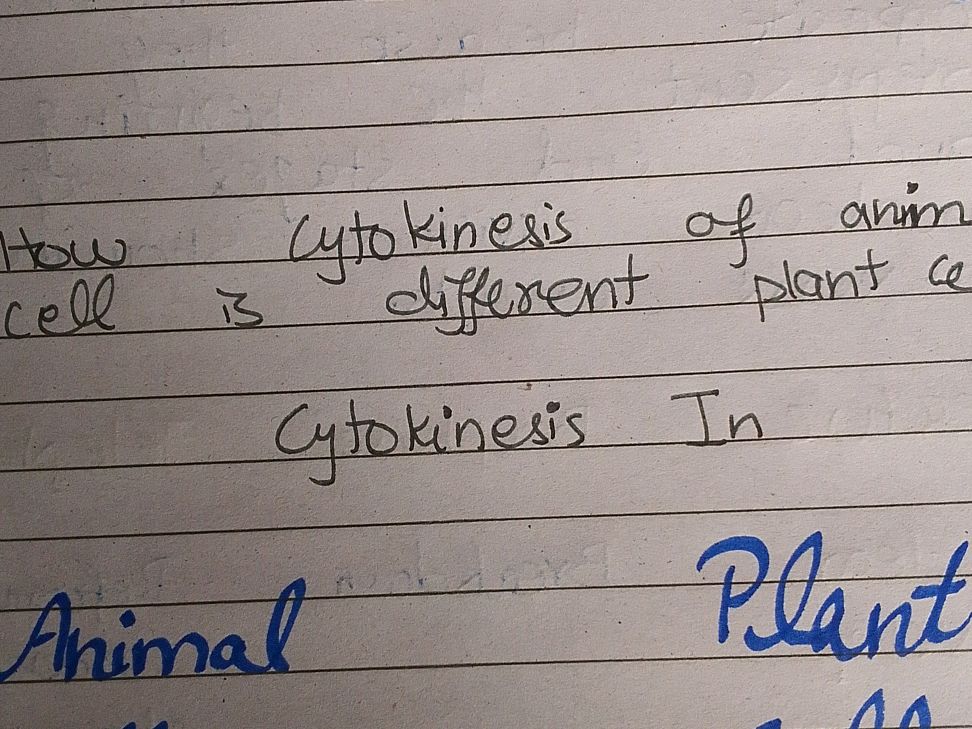 How Cytokinesis of anim
cell is different plant ce
Cytokinesis In
Animal Plant